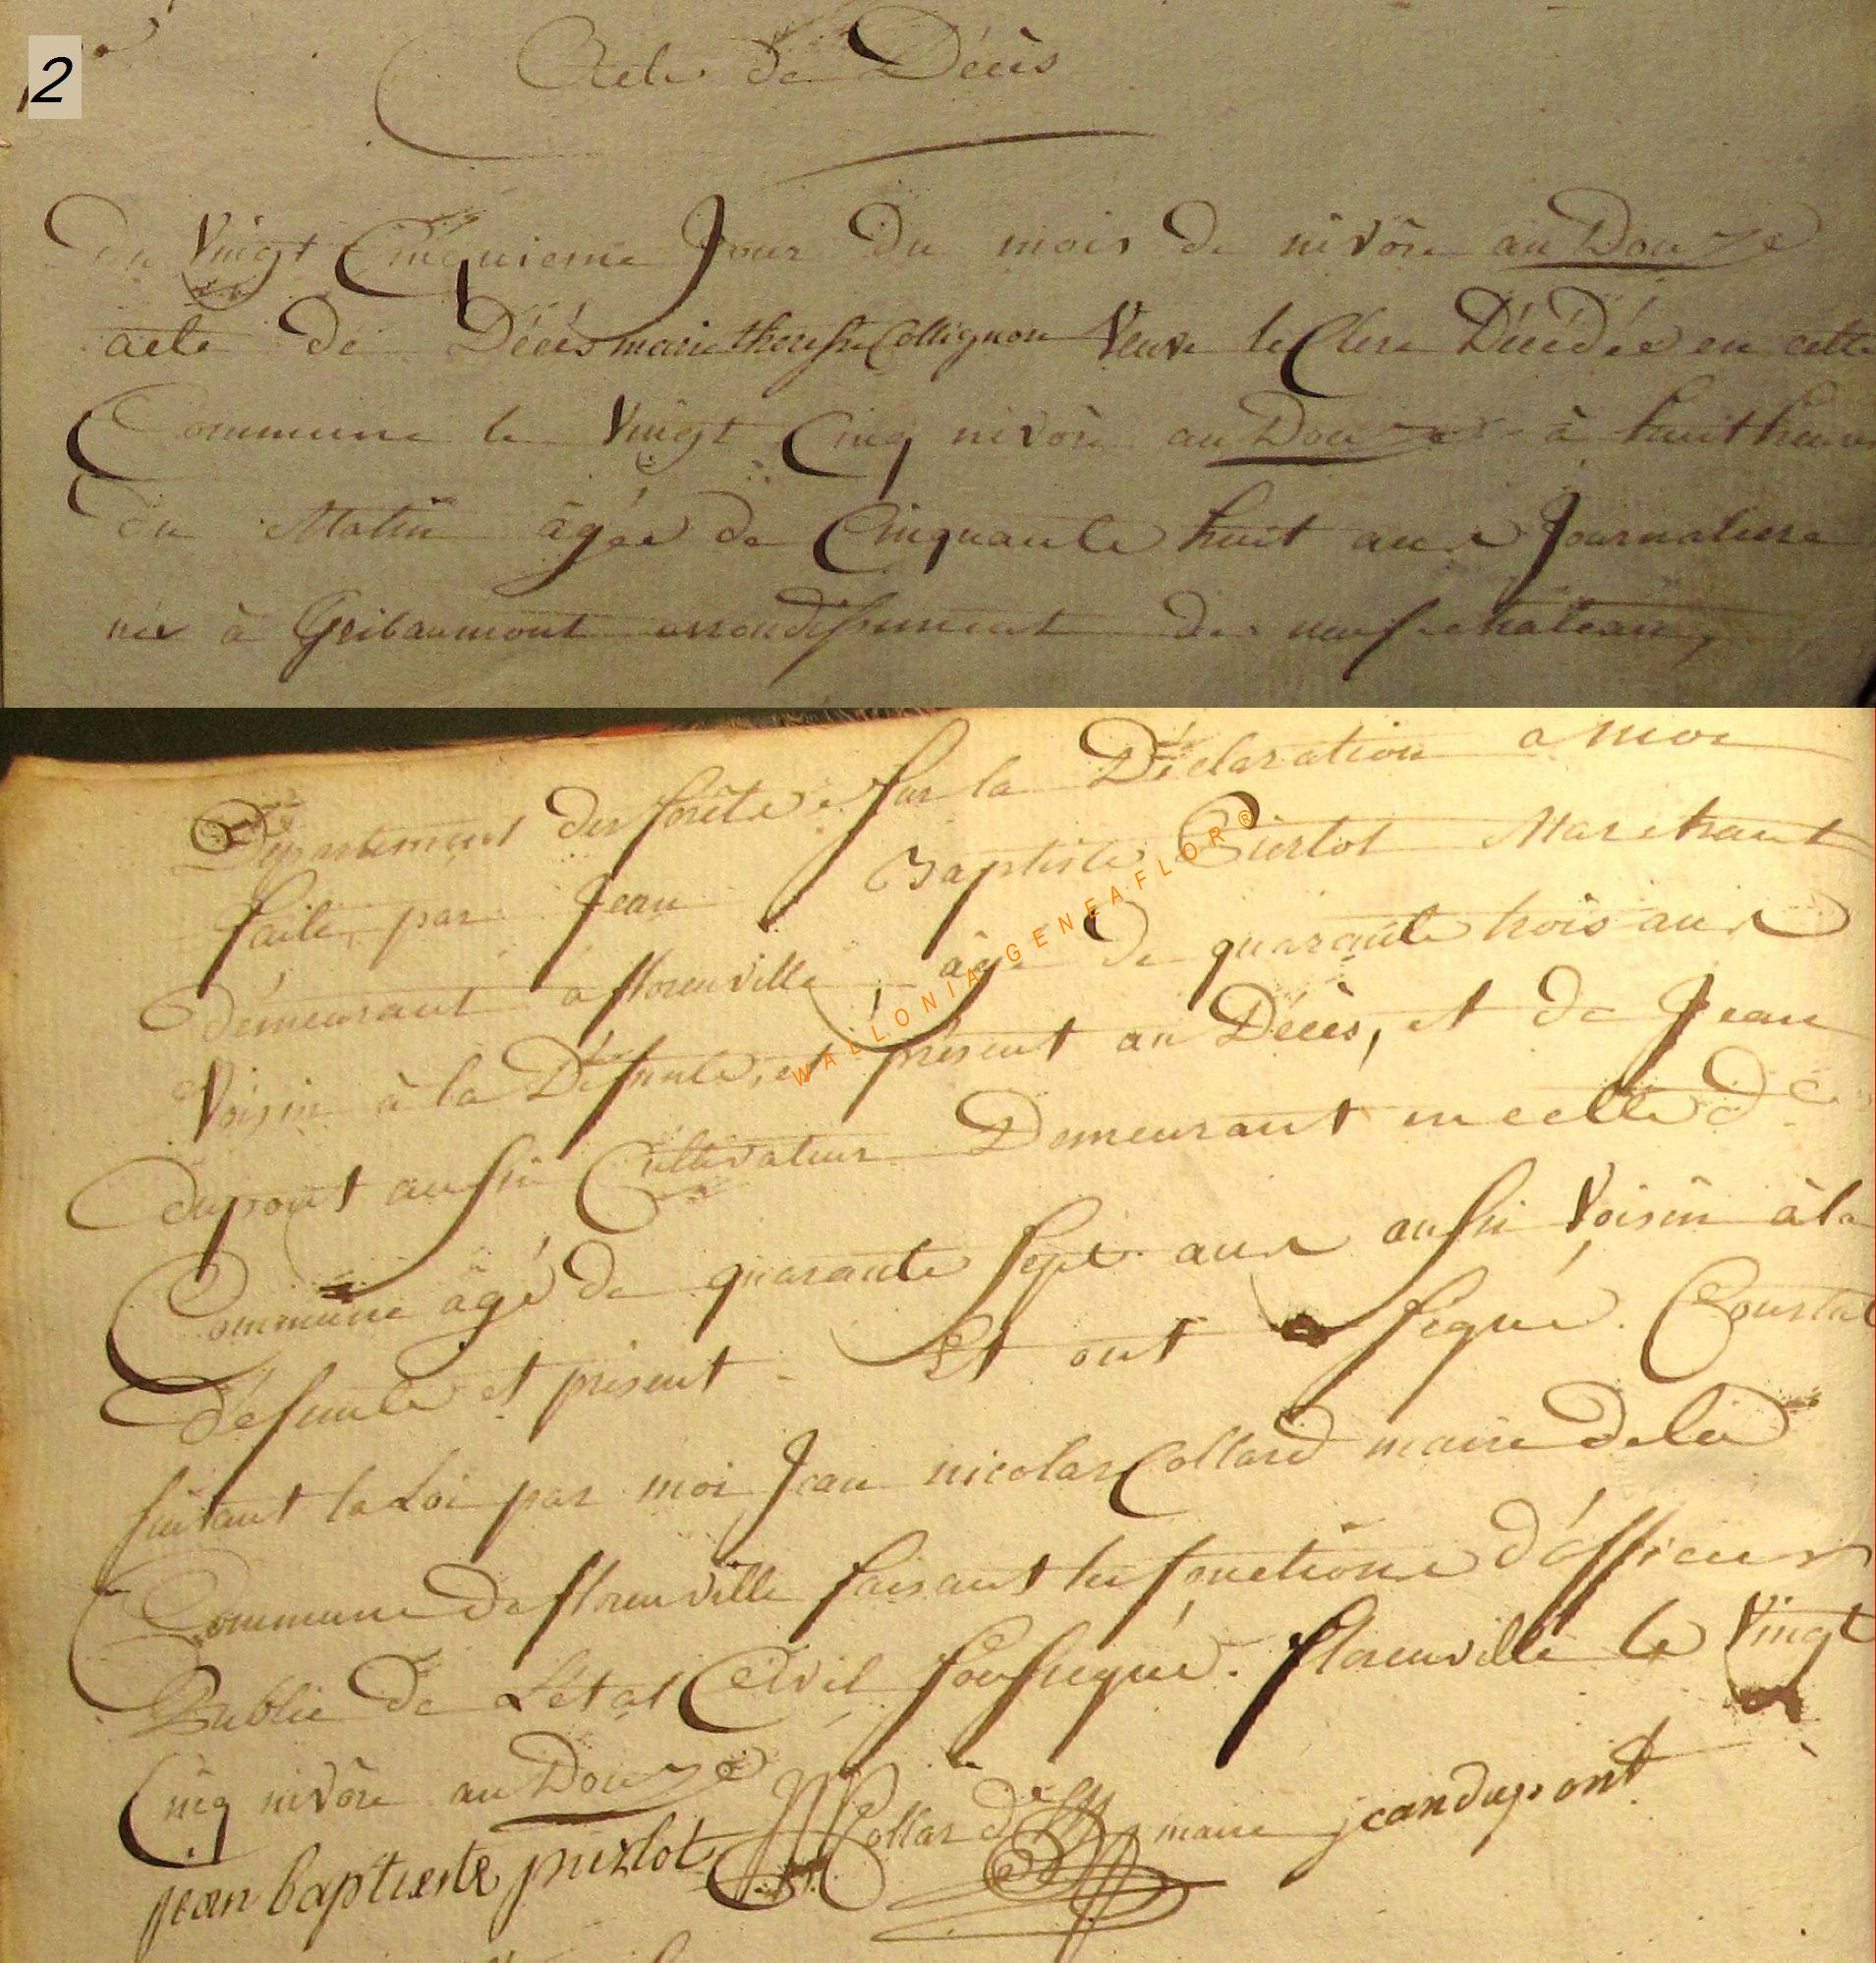 2
Acte de Décès
Du Vingt Cinquieme Jour du mois de nivôse an Douze
acte de Décés marie theresse Collignon Veuve le Clerc Décédée en cette
Commune le Vingt Cinq nivôse an Douze à huit heures
du Matin âgée de Cinquante huit ans Journaliere
née à Gribaumont arrondissement de neufchateau,
Département des forêts. sur la Déclaration a moi
faite par Jean Baptiste Pierlot Marchant
demeurant a florenville âgé de quarante trois ans
Voisin à la Défunte, et présent au Décès, et de Jean
dupont aussi Cultivateur Demeurant en cette de
Commune âgé de quarante sept ans aussi Voisin à la
défunte et présent - Et ont signé. Constaté
suivant la Loi par moi Jean nicolas Collard maire de la
Commune de florenville faisant les fonctions d'officier
Public de L'état Civil soussigné. florenville le Vingt
Cinq nivôse an Douze
Collard maire jean dupont
jean baptieste pierlot
WALLONIA.GENEA.FLOR®